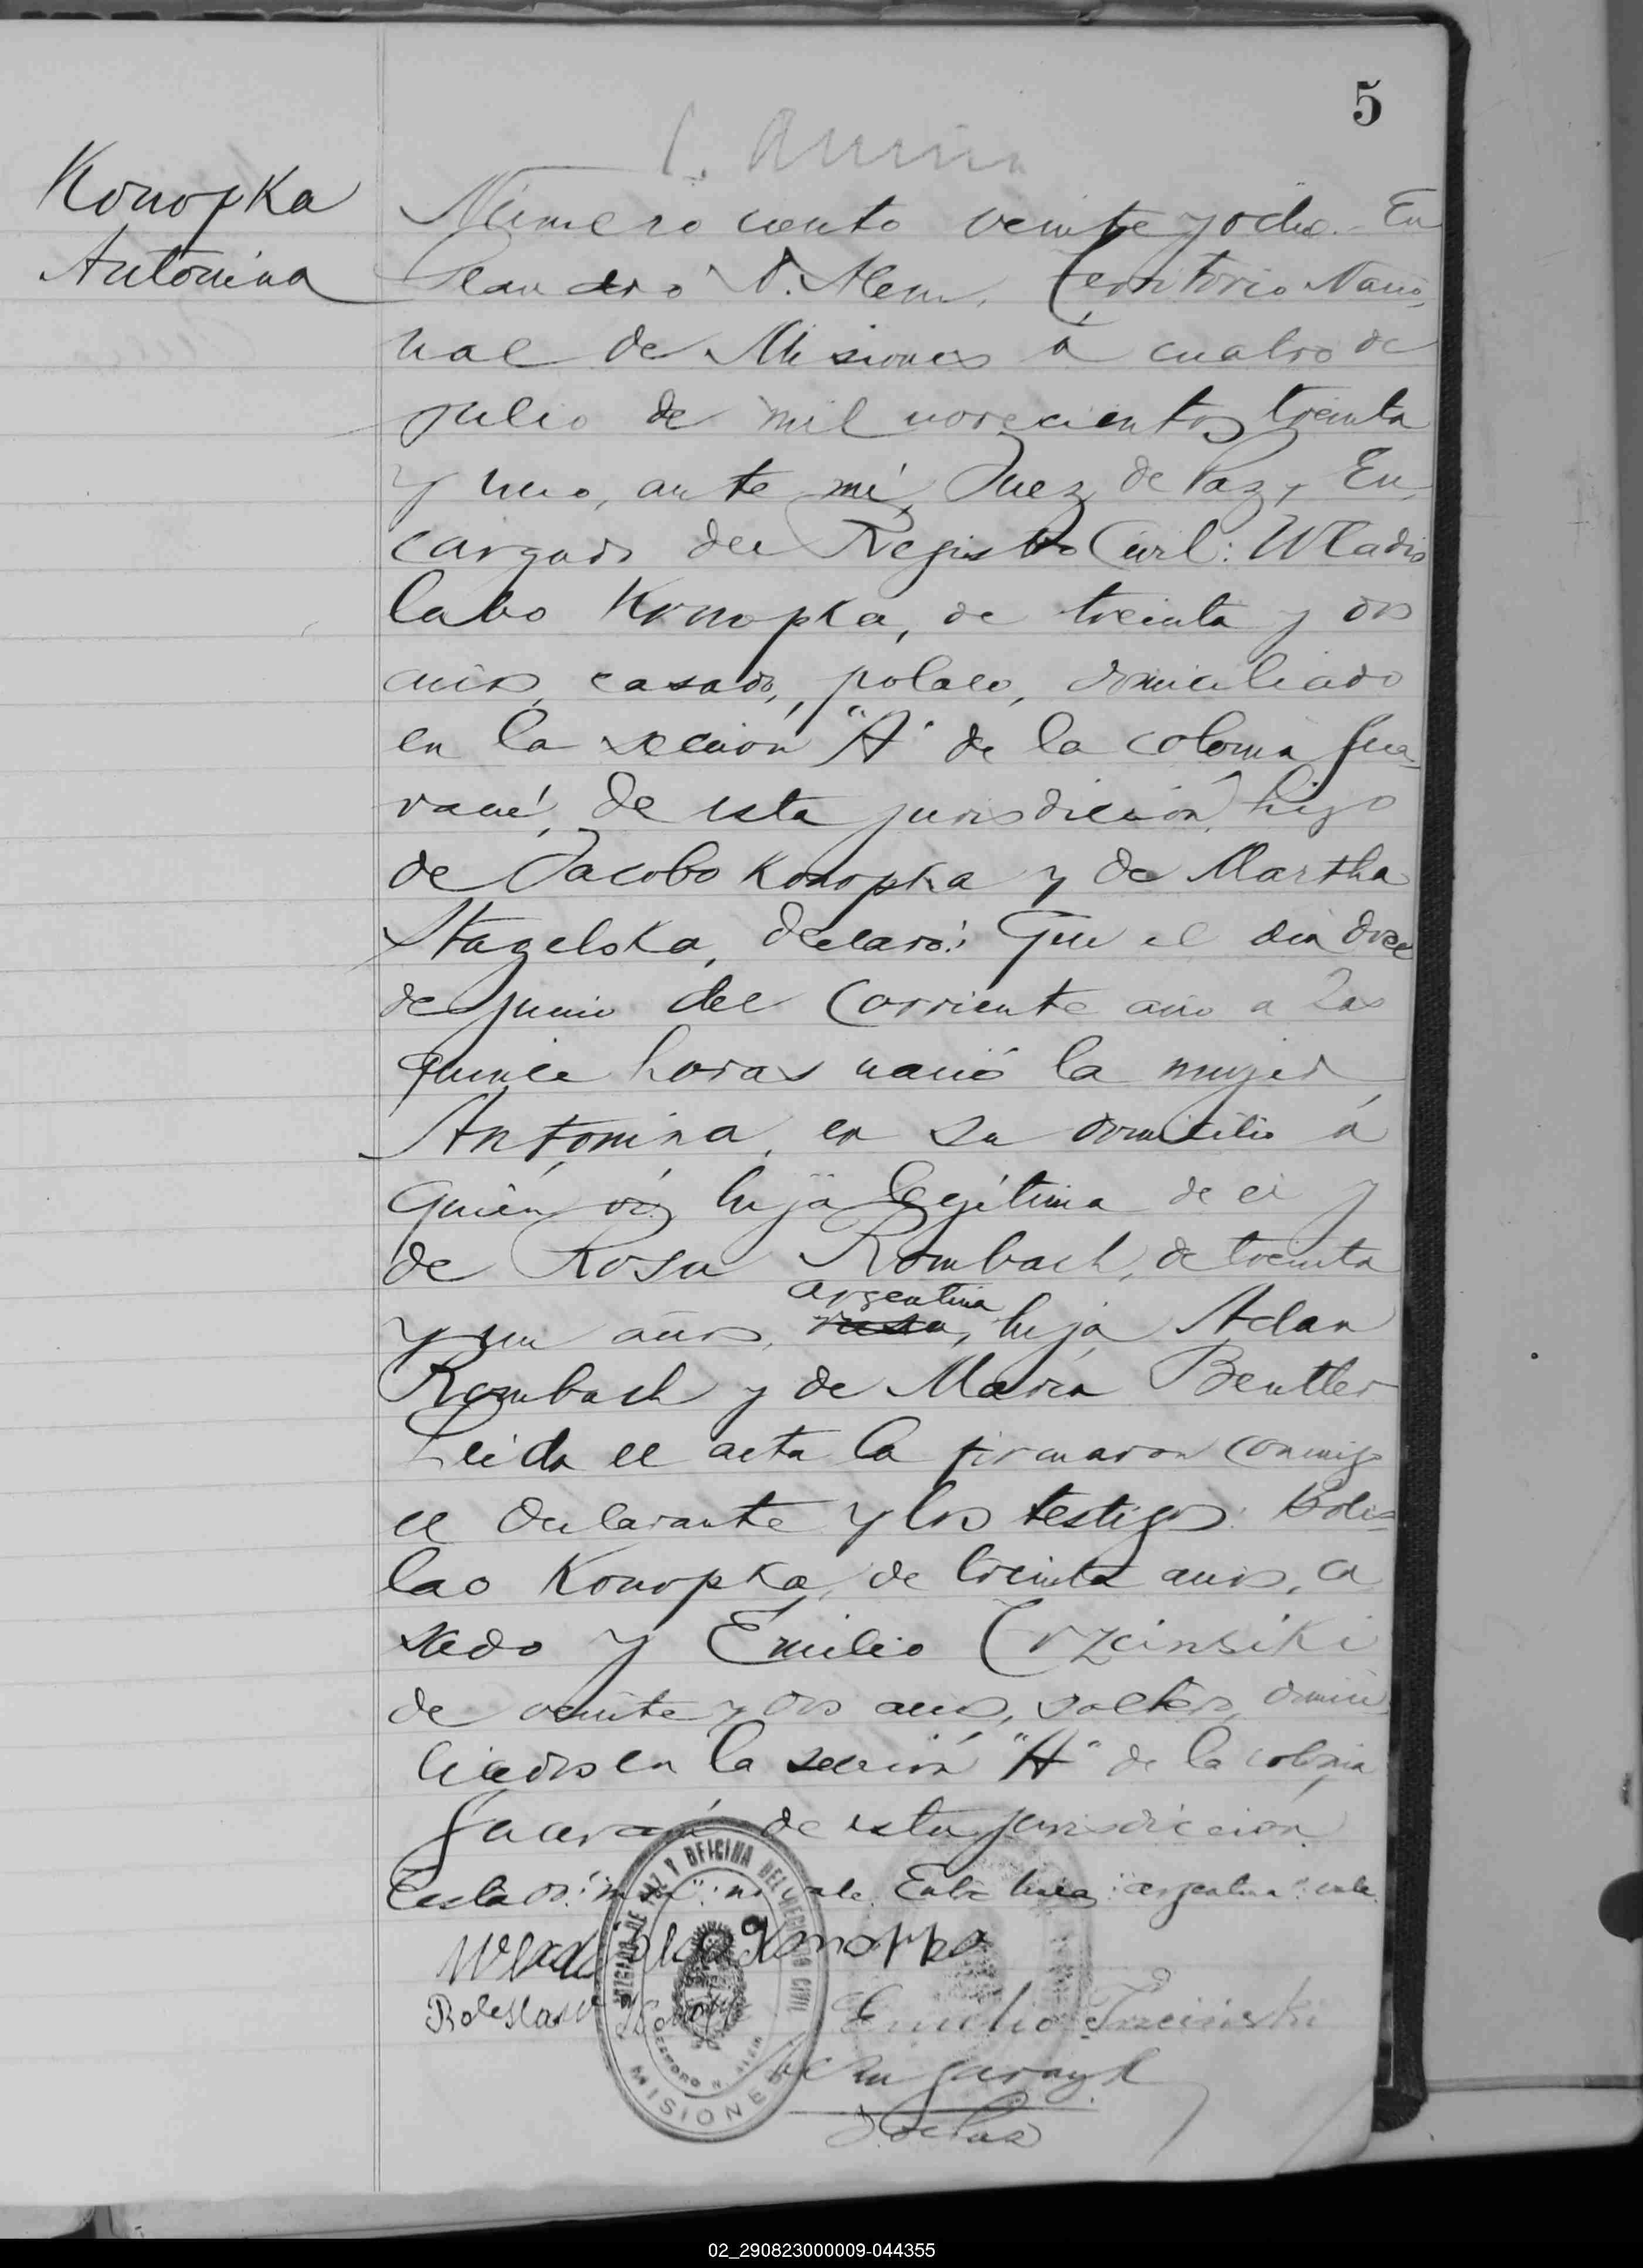 5
Konopka
Antonina
Número ciento veinte y ocho.- En
Leandro N. Alem, Territorio Nacio-
nal de Misiones á cuatro de
julio de mil novecientos treinta
y uno, ante mí, Juez de Paz y En-
cargado del Registro Civil: Wladis
labo Konopka, de treinta y dos
años, casado, polaco, domiciliado
en la sección "A" de la colonia Gua-
raní, de esta jurisdicción, hijo
de Jacobo Konopka y de Martha
Stagelska, declaró: Que el día doce
de junio del corriente año a las
quince horas nació la mujer
Antonina, en su domicilio á
quién ví, hija legítima de él y
de Rosa Rombach, de treinta
argentina
y un años, rusa, hija Adan
Rombach y de María Beutler
Leida el acta la firmaron conmigo
el declarante y los testigos: Boles-
lao Konopka, de treinta años, ca
sado y Emilio Trzcinsiki
de veinte y dos años, soltero, domici
liados en la sección "A" de la colonia
Guaraní de esta jurisdicción.
Testado: "rusa": no vale. Entre linea: "argentina": vale.
Konopka
JUZGADO DE PAZ Y OFICINA DEL REGISTRO CIVIL
LEANDRO N. ALEM
MISIONES
Emilio Trzcinski
02_290823000009-044355